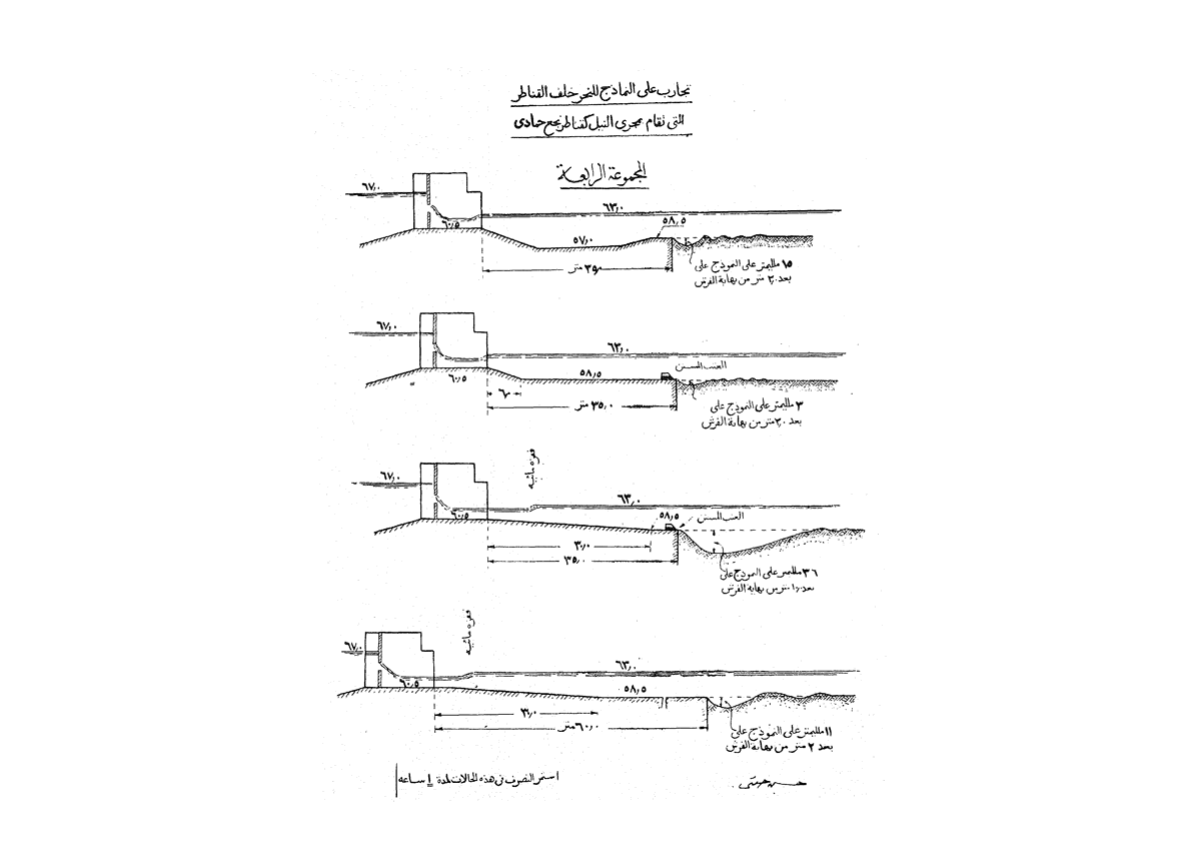 تجارب على النماذج للنحر خلف القناطر
التى تقام بمجرى النيل كقناطر نجع حمادى
المجموعة الرابعة
٦٧٫٠
٦٣٫٠
٦٠٫٥
٥٨٫٥
٥٧٫٠
متر
١٥ ملليمتر على النموذج على
بعد ٢٫٠ متر من نهاية الفرش
٦٧٫٠
٦٣٫٠
العتب المسنن
٦٠٫٥
٥٨٫٥
٦٫٠
٣٥٫٠ متر
٣ ملليمتر على النموذج على
بعد ٢٫٠ متر من نهاية الفرش
قفزه مائيه
٦٧٫٠
٦٣٫٠
٦٠٫٥
٥٨٫٥
العتب المسنن
٣٠٫٠
٣٥٫٠
٣٦ ملليمتر على النموذج على
بعد ١٠٫٠ متر من نهاية الفرش
قفزه مائيه
٦٧٫٠
٦٣٫٠
٦٠٫٥
٥٨٫٥
٦٠٫٠ متر
١١ ملليمتر على النموذج على
بعد ٢ متر من نهاية الفرش
استمر التصرف فى هذه الحالات لمدة ١ ساعه